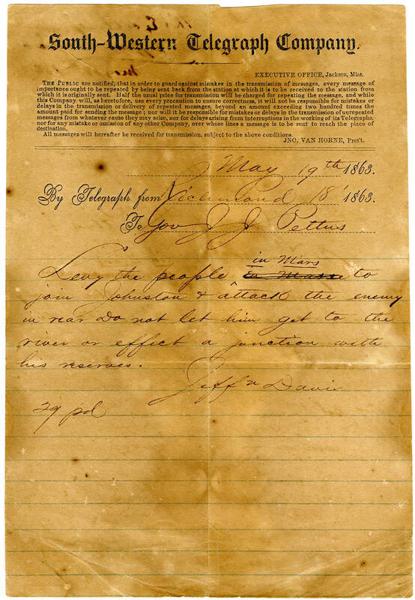 South-Western Telegraph Company.
EXECUTIVE OFFICE, Jackson, Miss.
THE PUBLIC are notified, that in order to guard against mistakes in the transmission of messages, every message of
importance ought to be repeated by being sent back from the station at which it is to be received to the station from
which it is originally sent. Half the usual price for transmission will be charged for repeating the message, and while
this Company will, as heretofore, use every precaution to ensure correctness, it will not be responsible for mistakes or
delays in the transmission or delivery of repeated messages, beyond an amount exceeding two hundred times the
amount paid for sending the message; nor will it be responsible for mistakes or delays in the transmission of unrepeated
messages from whatever cause they may arise, nor for delays arising from interruptions in the working of its Telegraphs,
nor for any mistake or omission of any other Company, over whose lines a message is to be sent to reach the place of
destination.
All messages will hereafter be received for transmission, subject to the above conditions.
JNO. VAN HORNE, Pres't.
May 19th 1863.
By Telegraph from Richmond 18' 1863.
To Gov J J Pettus
Levy the people in Mass to
join Johnston & attack the enemy
in rear Do not let him get to the
river or effect a junction with
his reserves.
Jeffn Davis
29 pd